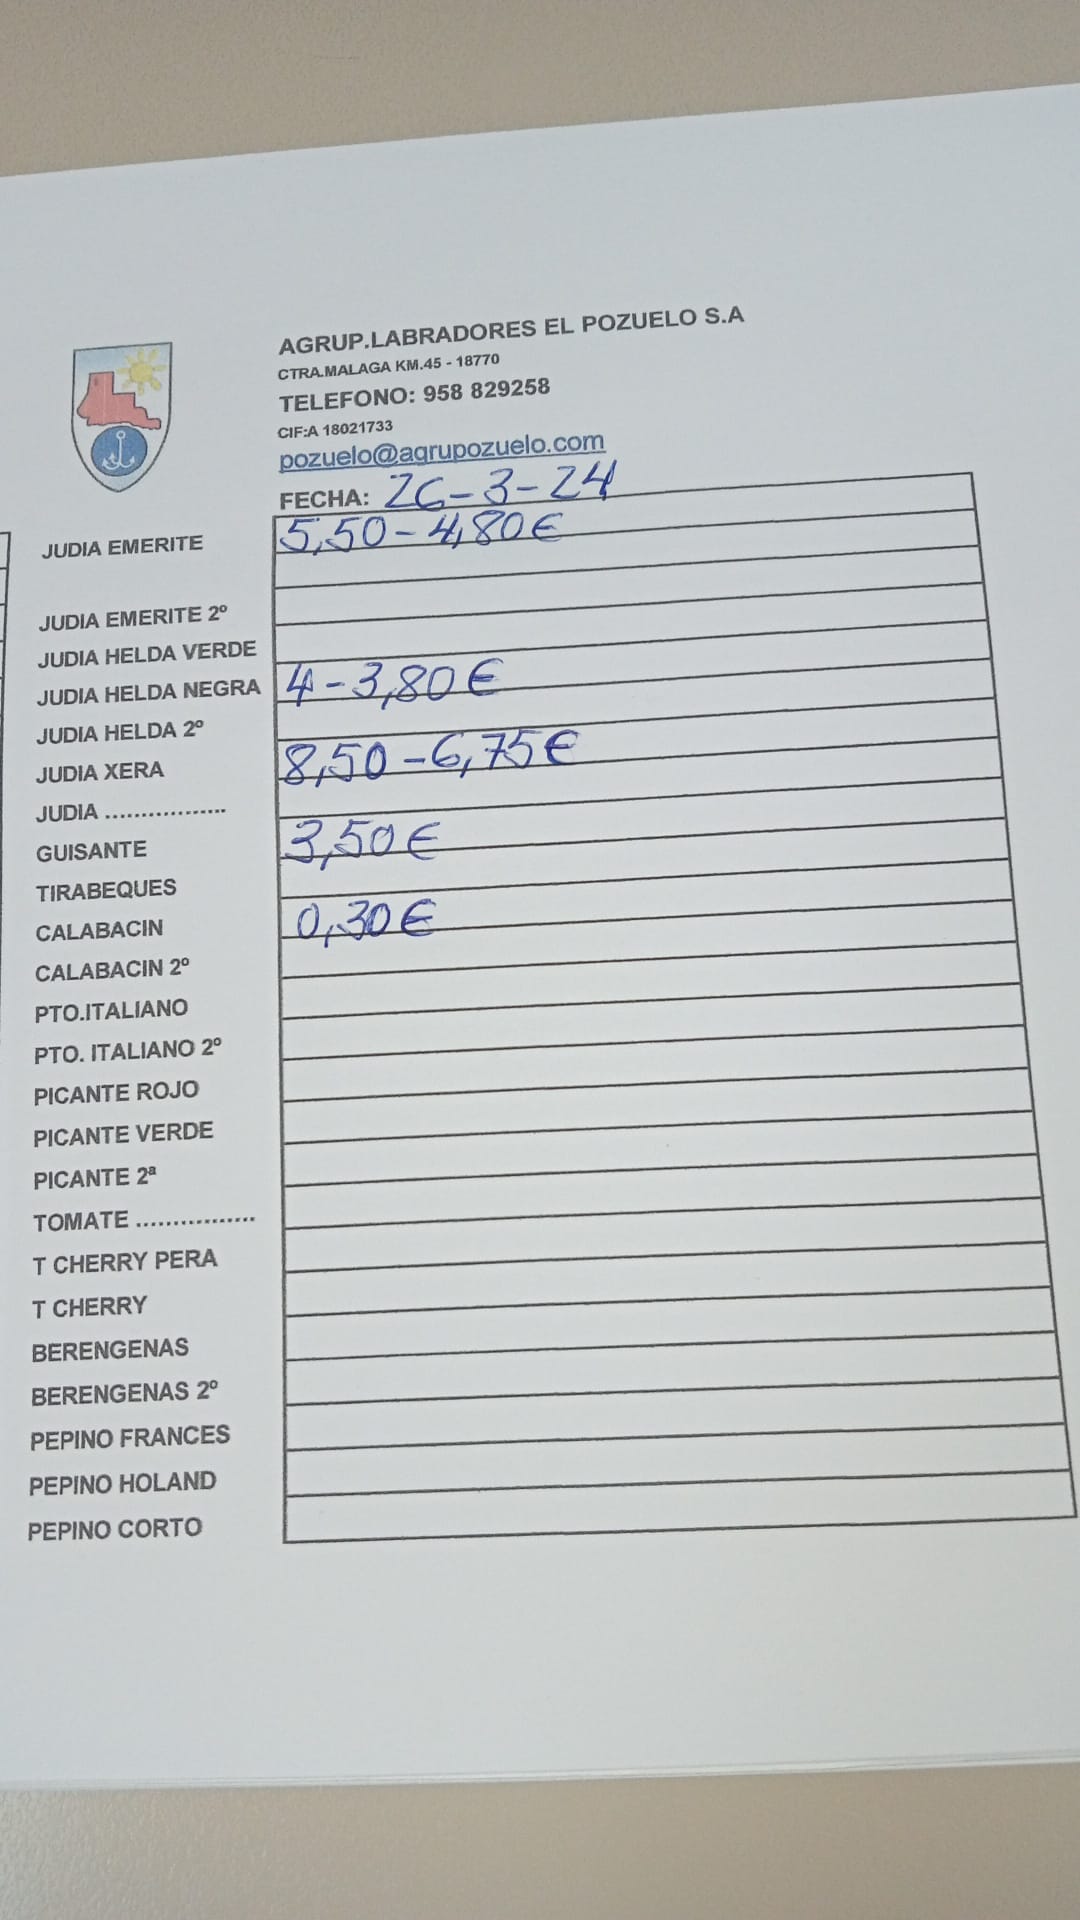 AGRUP.LABRADORES EL POZUELO S.A
CTRA.MALAGA KM.45 - 18770
TELEFONO: 958 829258
CIF:A 18021733
pozuelo@agrupozuelo.com
FECHA: 26-3-24
JUDIA EMERITE 5,50-4,80€
JUDIA EMERITE 2º
JUDIA HELDA VERDE
JUDIA HELDA NEGRA 4-3,80€
JUDIA HELDA 2º
JUDIA XERA 8,50-6,75€
JUDIA .................
GUISANTE 3,50€
TIRABEQUES
CALABACIN 0,30€
CALABACIN 2º
PTO.ITALIANO
PTO. ITALIANO 2º
PICANTE ROJO
PICANTE VERDE
PICANTE 2ª
TOMATE ................
T CHERRY PERA
T CHERRY
BERENGENAS
BERENGENAS 2º
PEPINO FRANCES
PEPINO HOLAND
PEPINO CORTO